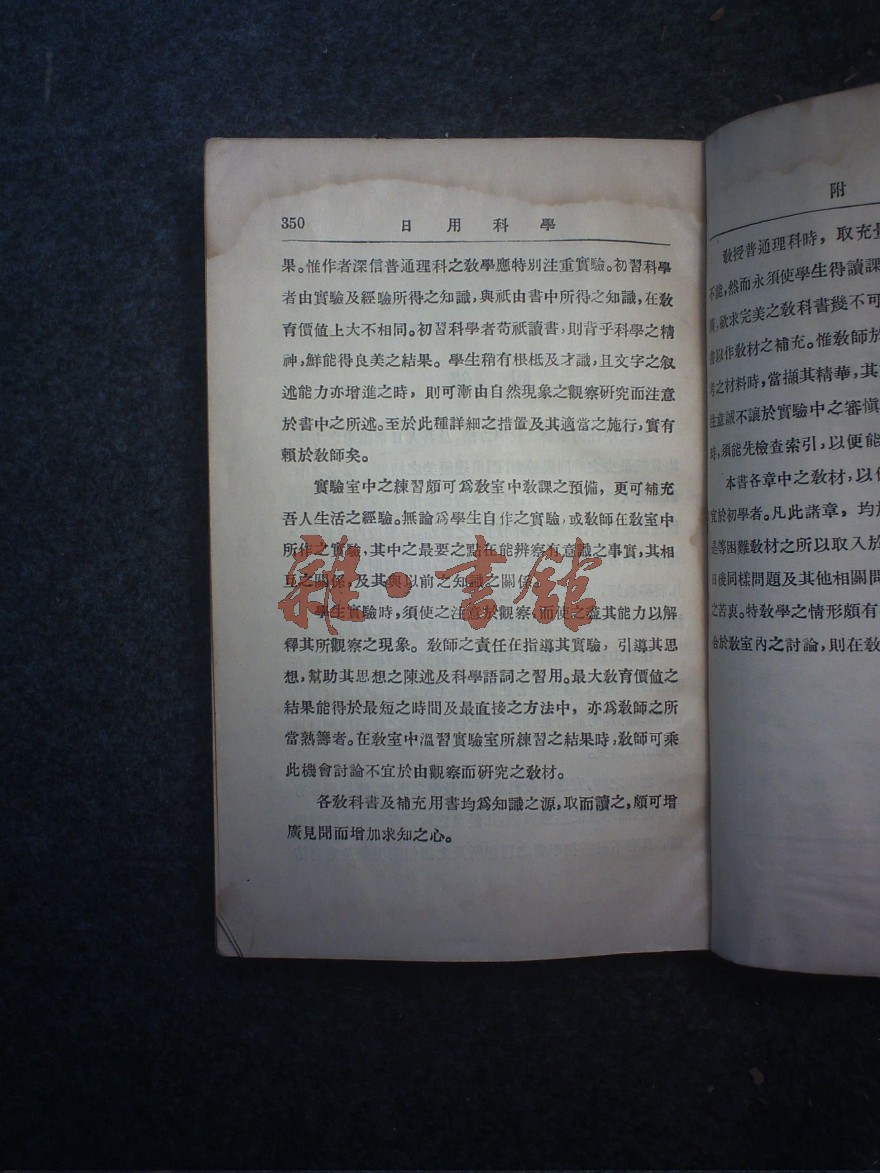 350 日用科學
果。惟作者深信普通理科之敎學應特別注重實驗。初習科學
者由實驗及經驗所得之知識，與祇由書中所得之知識，在敎
育價值上大不相同。初習科學者苟祇讀書，則背乎科學之精
神，鮮能得良美之結果。學生稍有根柢及才識，且文字之叙
述能力亦增進之時，則可漸由自然現象之觀察硏究而注意
於書中之所述。至於此種詳細之措置及其適當之施行，實有
賴於敎師矣。
實驗室中之練習頗可爲敎室中敎課之預備，更可補充
吾人生活之經驗。無論爲學生自作之實驗，或敎師在敎室中
所作之實驗，其中之最要之點在能辨察有意識之事實，其相
互之關係，及其與以前之知識之關係。
學生實驗時，須使之注意於觀察，而使之盡其能力以解
釋其所觀察之現象。敎師之責任在指導其實驗，引導其思
想，幫助其思想之陳述及科學語詞之習用。最大敎育價值之
結果能得於最短之時間及最直接之方法中，亦爲敎師之所
當熟籌者。在敎室中溫習實驗室所練習之結果時，敎師可乘
此機會討論不宜於由觀察而硏究之敎材。
各敎科書及補充用書均爲知識之源，取而讀之，頗可增
廣見聞而增加求知之心。
雜·書館
附
敎授普通理科時，取充
不能，然而永須使學生得讀課
廣，欲求完美之敎科書幾不可
書以作敎材之補充。惟敎師於
考之材料時，當擷其精華，其
注意誠不讓於實驗中之審愼
時，須能先檢查索引，以便能
本書各章中之敎材，以
宜於初學者。凡此諸章，均
是等困難敎材之所以取入於
日後同樣問題及其他相關問
之苦衷。特敎學之情形頗有
合於敎室內之討論，則在敎